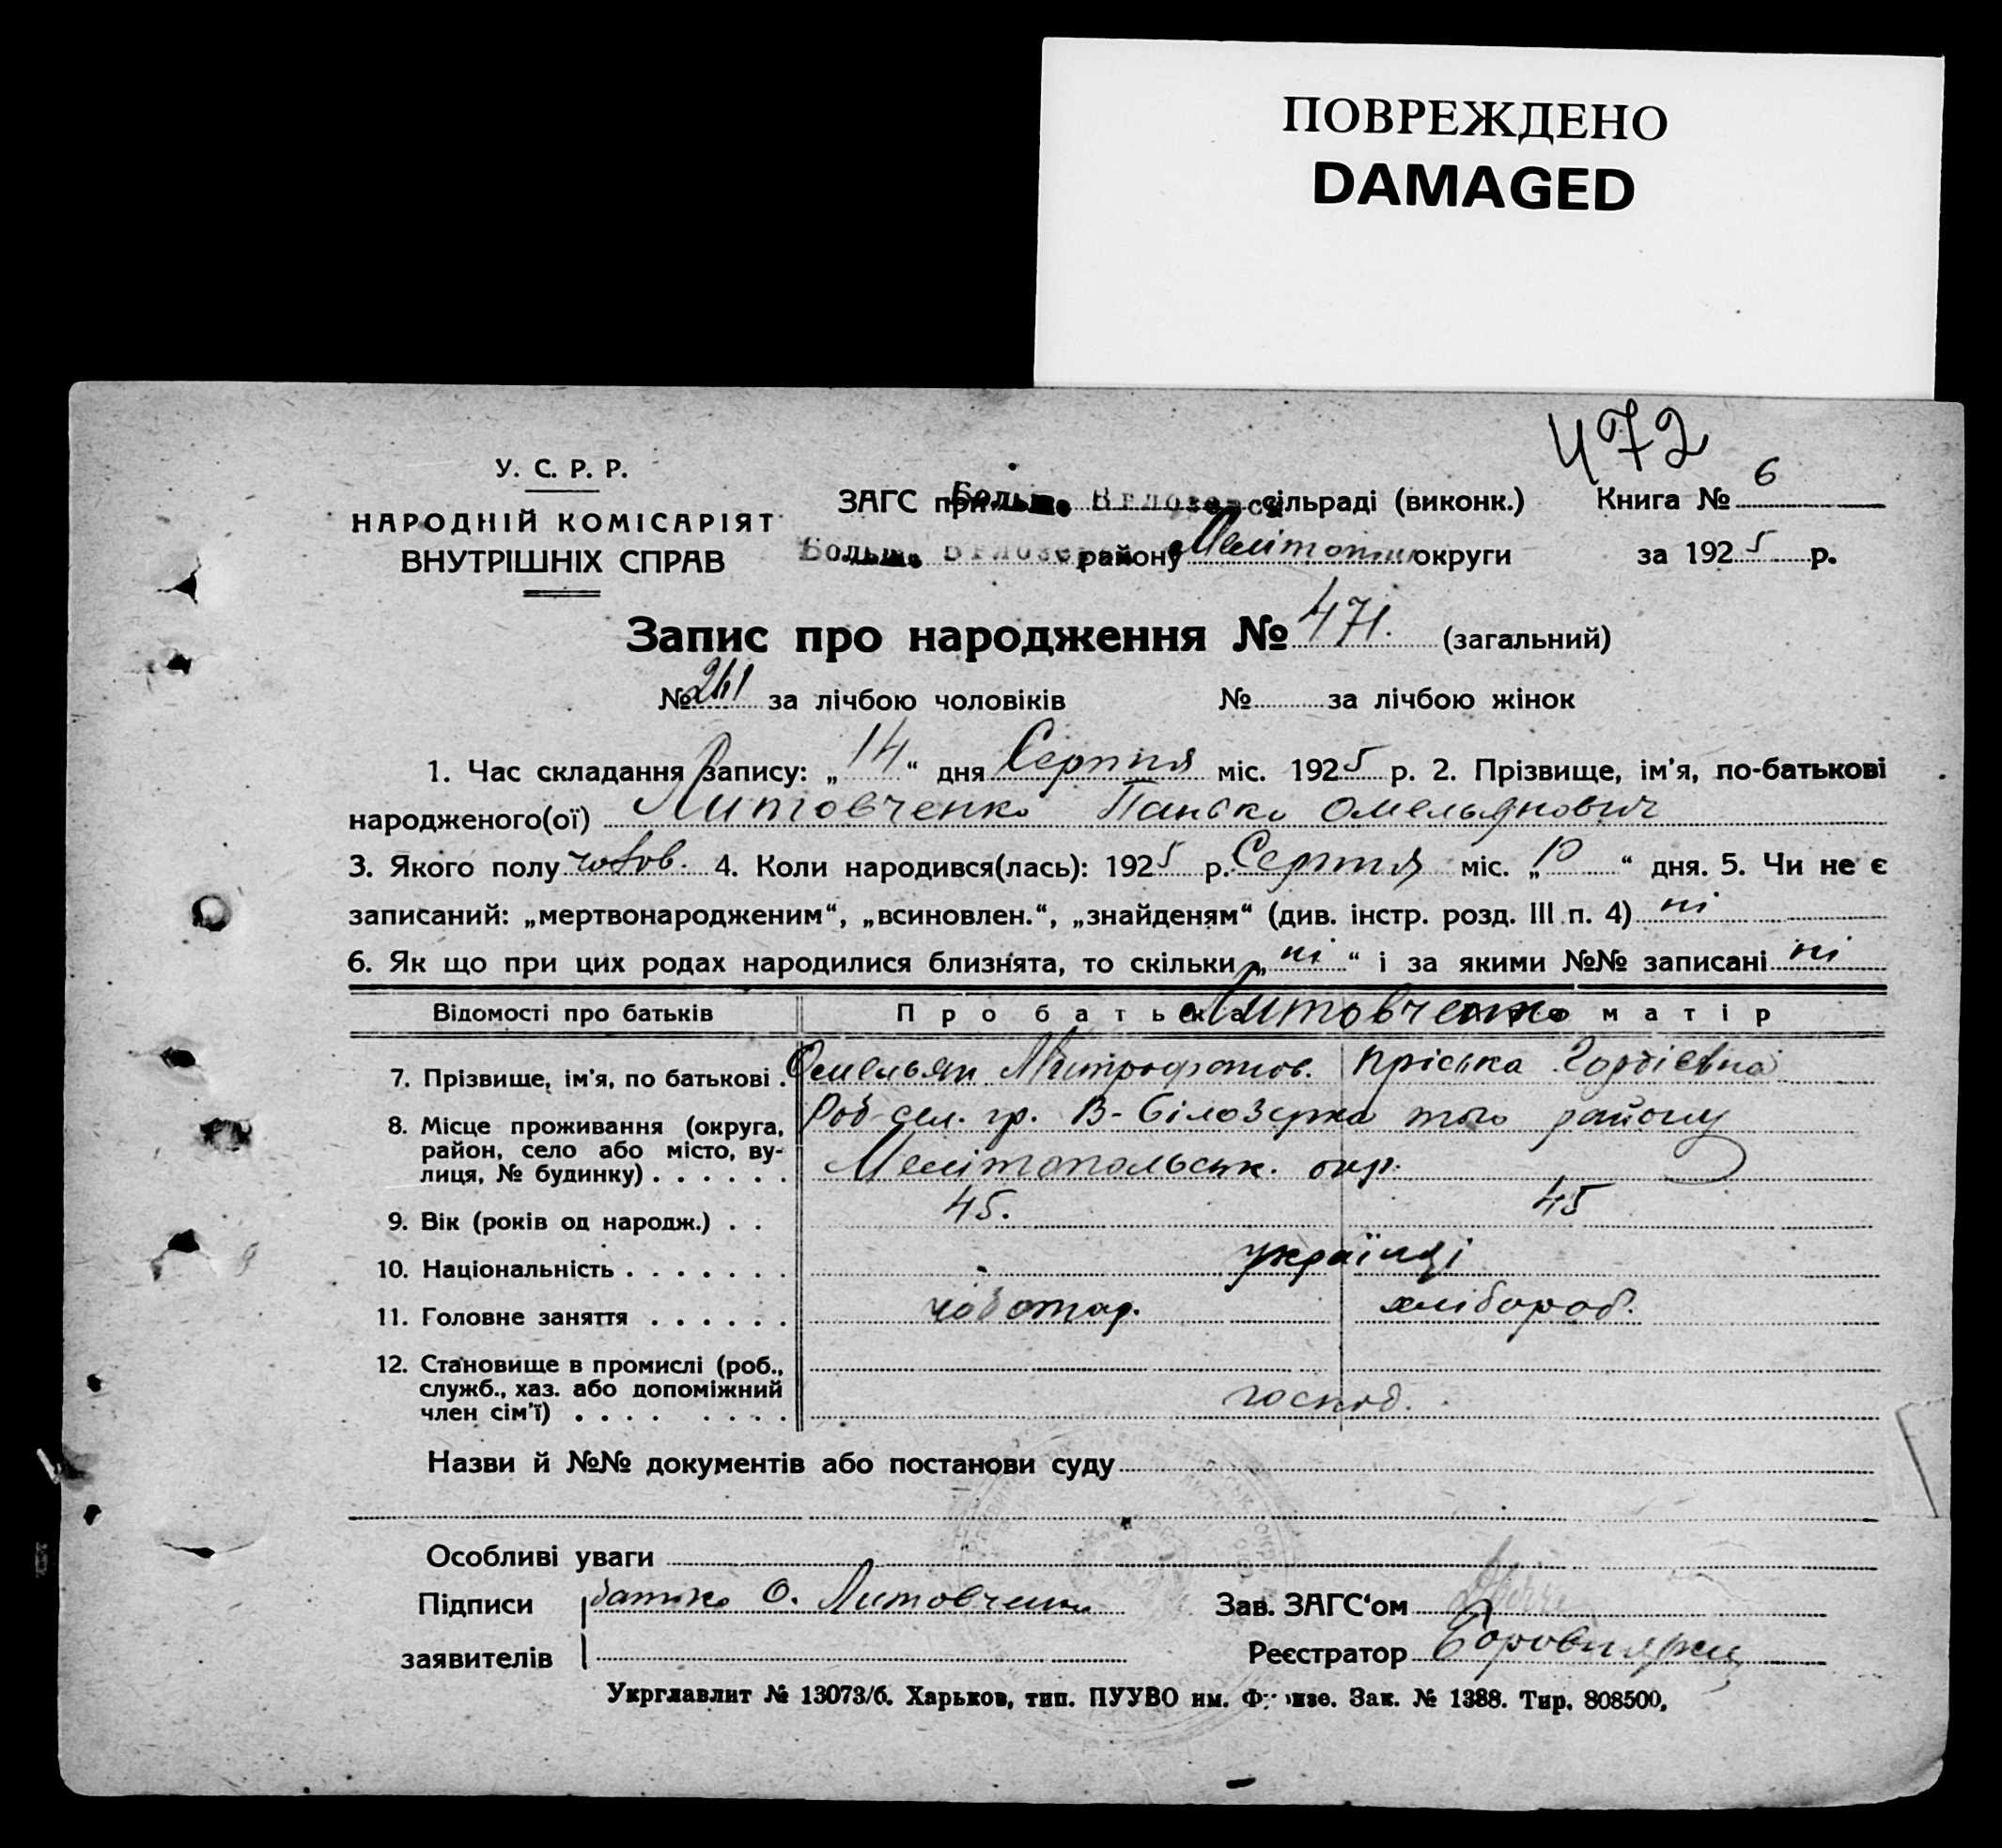 ПОВРЕЖДЕНО
DAMAGED
472
У. С. Р. Р.
НАРОДНІЙ КОМІСАРІЯТ
ВНУТРІШНІХ СПРАВ
ЗАГС при Больше Вѣлозерс сільраді (виконк.) Книга № 6
Больше Вѣлозер району Мелітоп округи за 1925 р.
Запис про народження № 471. (загальний)
№ 261 за лічбою чоловіків № за лічбою жінок
1. Час складання запису: „14“ дня Серпня міс. 1925 р. 2. Прізвище, ім'я, по-батькові
народженого(ої) Литовченко Панько Омельянович
3. Якого полу чолов. 4. Коли народився(лась): 1925 р. Серпня міс. „10“ дня. 5. Чи не є
записаний: „мертвонародженим“, „всиновлен.“, „знайденям“ (див. інстр. розд. III п. 4) ні
6. Як що при цих родах народилися близнята, то скільки „ні“ і за якими №№ записані ні
Відомості про батьків Про батька Про матір
Литовченко
7. Прізвище, ім'я, по батькові . Омельян Митрофанов. Пріська Гордієвна
8. Місце проживання (округа, район, село або місто, вулиця, № будинку) . . . . . . сел. гр. В-Білозерка того району
Мелітопольськ. окр.
9. Вік (років од народж.) . . 45. 45
10. Національність . . . . . . . українці
11. Головне заняття . . . . . . чоботар. хлібороб.
12. Становище в промислі (роб., служб., хаз. або допоміжний член сім'ї) . . . . . . . . господ.
Назви й №№ документів або постанови суду
Особливі уваги
Підписи батько О. Литовченко Зав. ЗАГС'ом
заявителів Реєстратор
Укрглавлит № 13073/б. Харьков, тип. ПУУВО им. Фрунзе. Зак. № 1388. Тир. 808500,